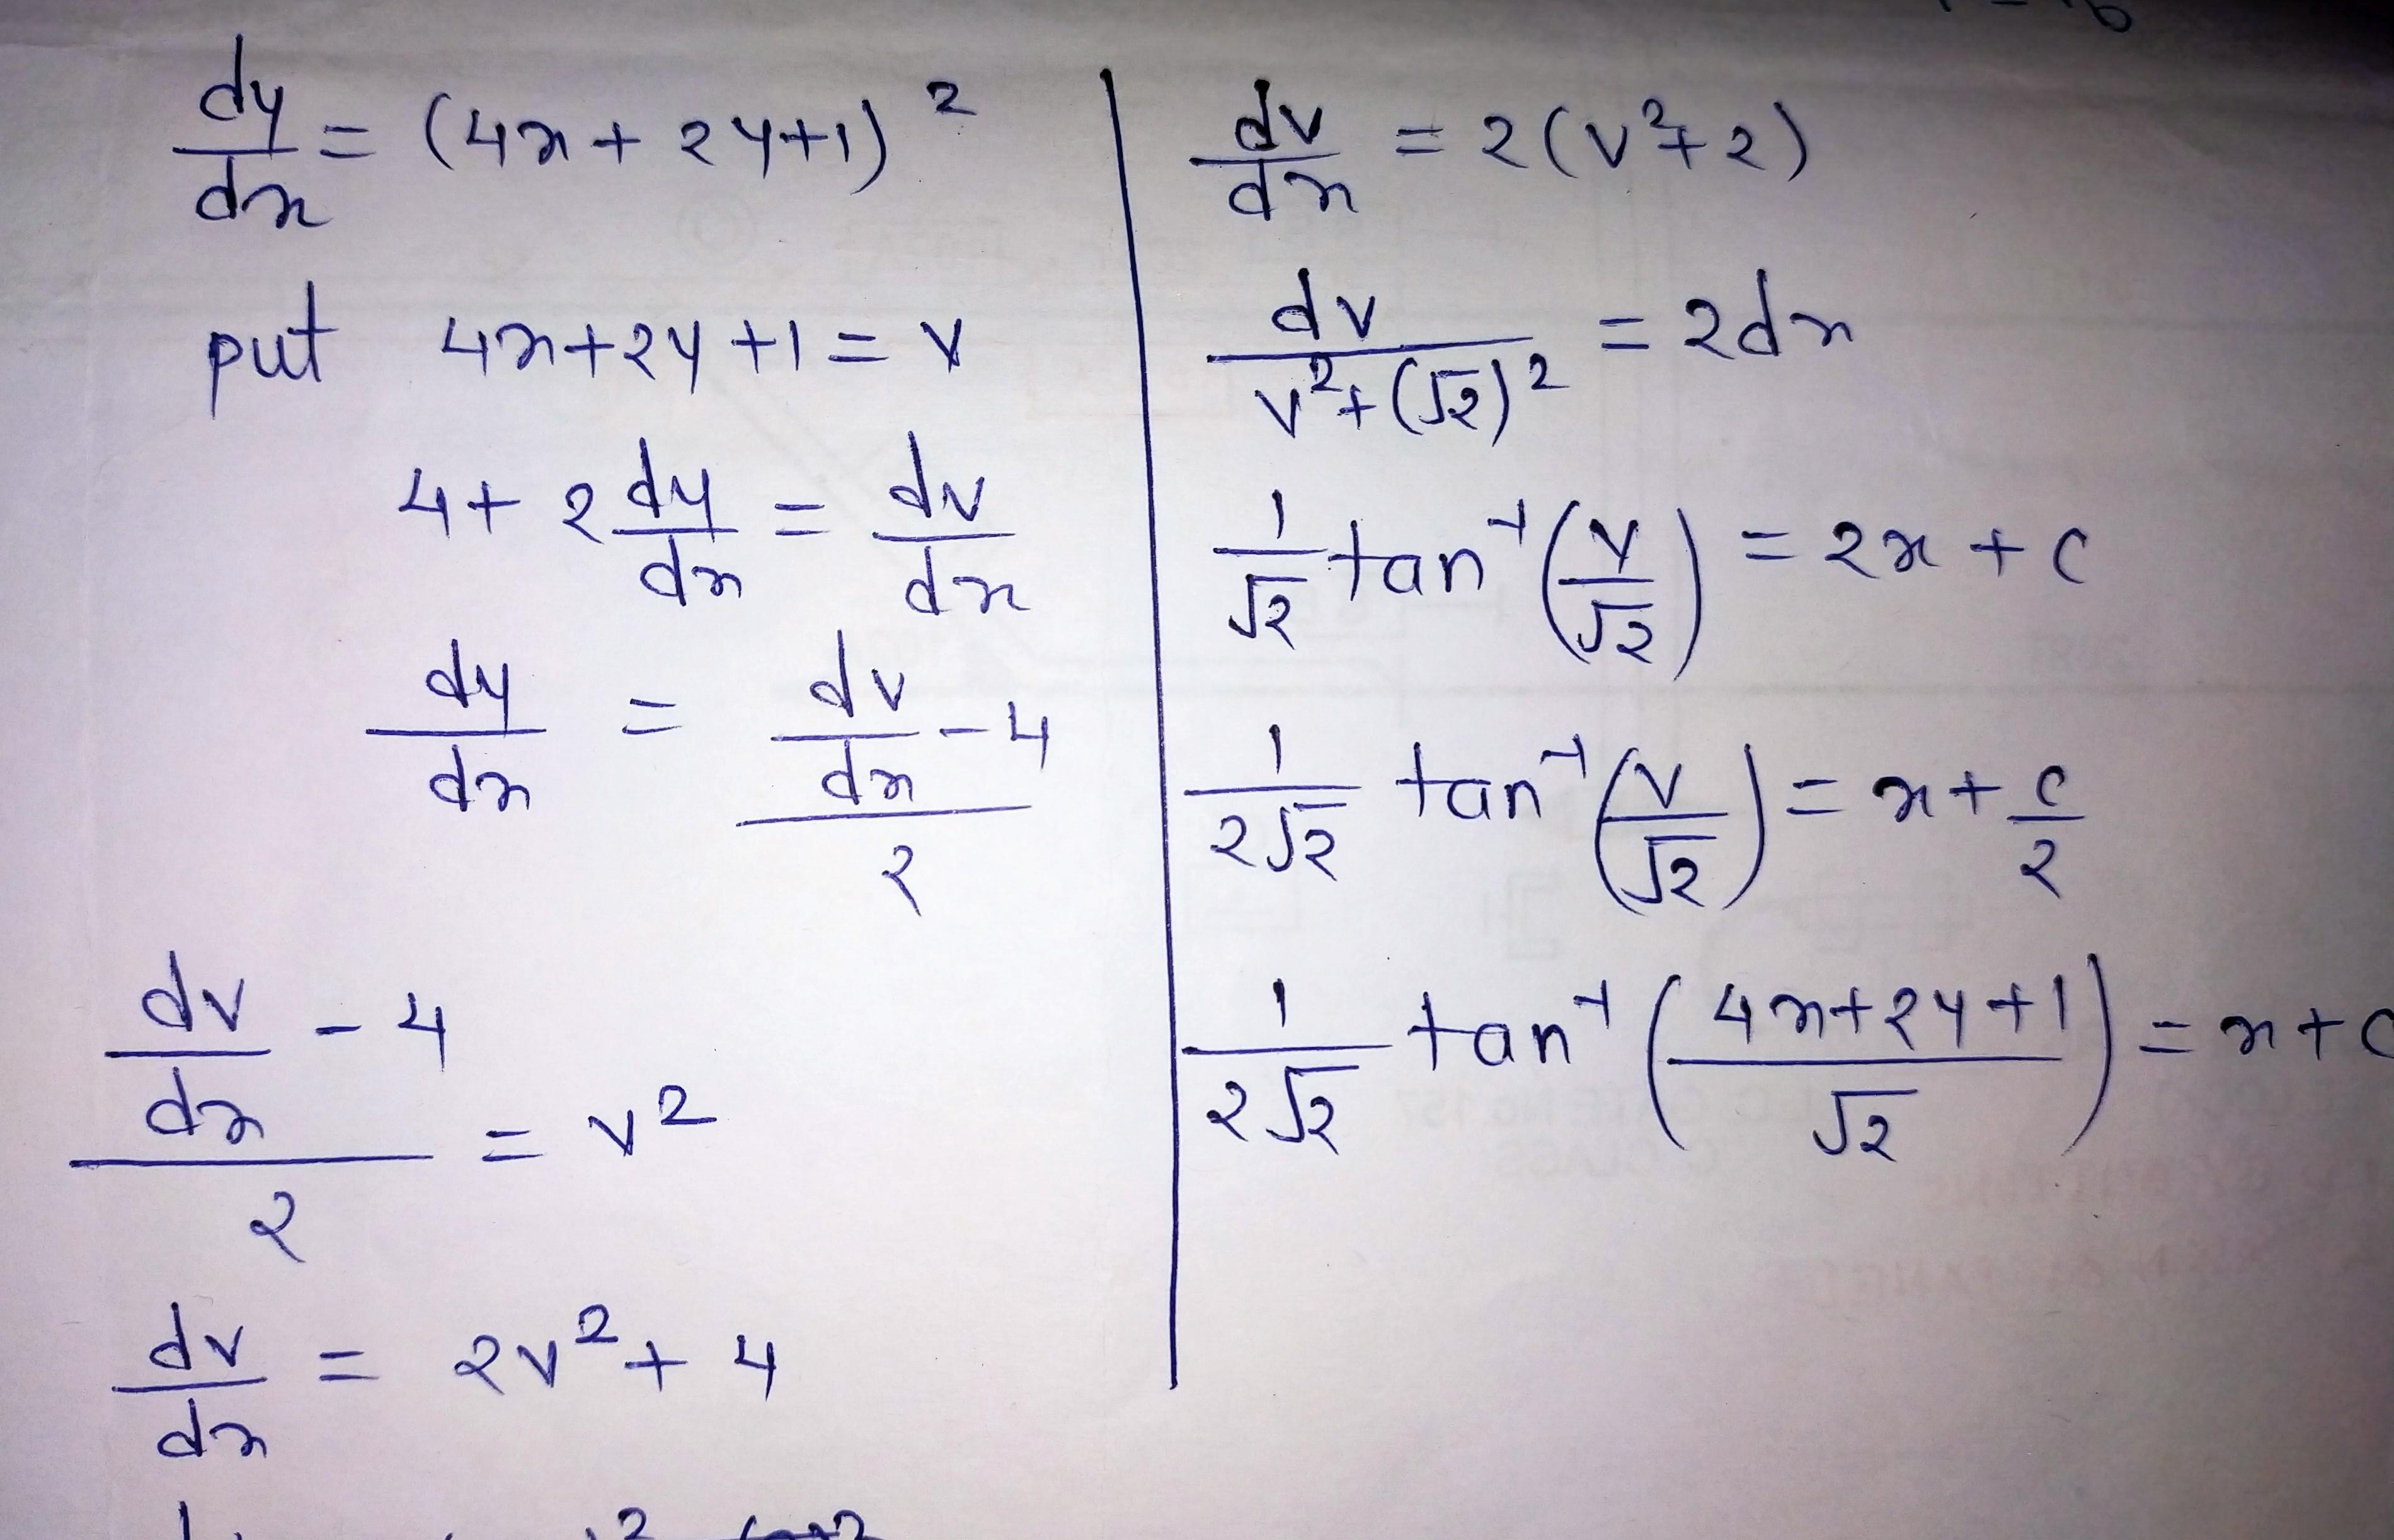 dy/dx = (4x + 2y+1)²
put 4x+2y+1 = v
4+ 2 dy/dx = dv/dx
dy/dx = (dv/dx - 4)/2
(dv/dx - 4)/2 = v²
dv/dx = 2v² + 4
dv/dx = 2(v²+2)
dv/(v²+(√2)²) = 2dx
1/√2 tan⁻¹(v/√2) = 2x + c
1/(2√2) tan⁻¹(v/√2) = x + c/2
1/(2√2) tan⁻¹((4x+2y+1)/√2) = x+c